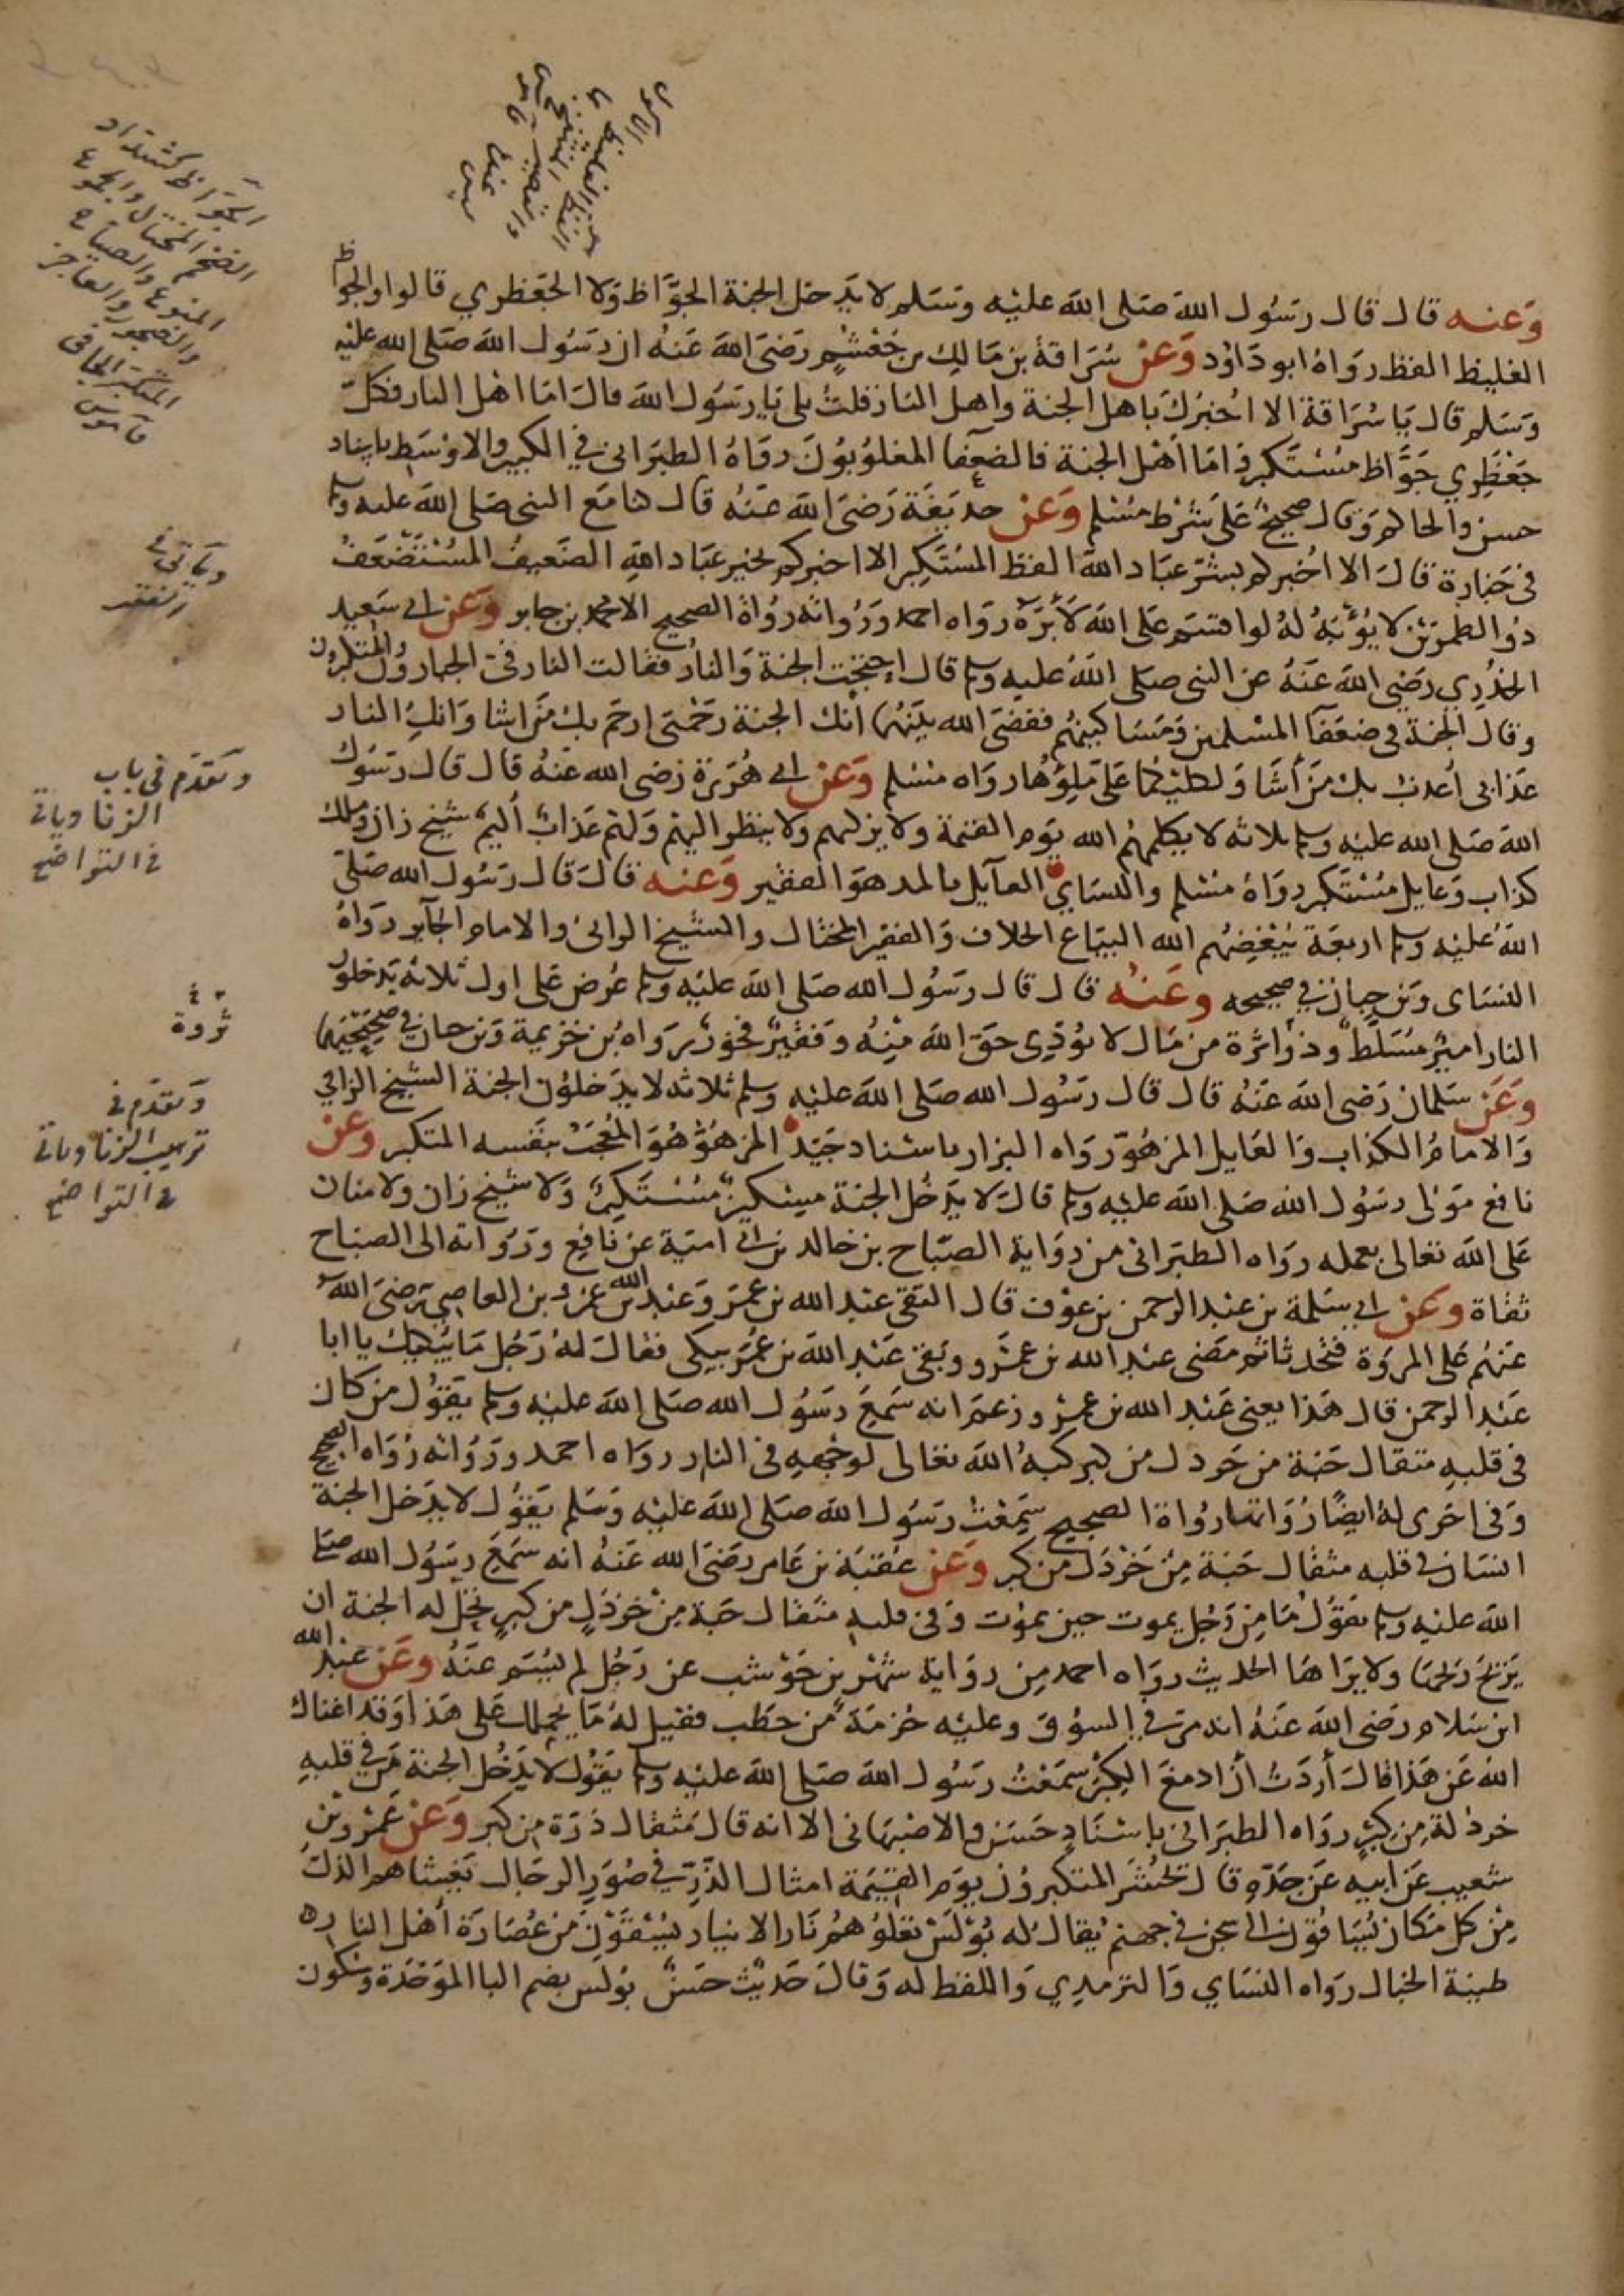 وَعنه قال قال رسُول الله صَلى الله عليْه وسَلم لا يدخل الجنة الجوَّاظ وَلا الجعْظري قالوا والجواظ
الغليظ الفظ رواهُ ابو داوُد وَعنْ سُرَاقةَ بن مَالِك بن جُعْشُمٍ رَضىَ الله عَنهُ ان رَسُول الله صَلى الله عليْه
وَسَلم قال يَا سُرَاقة الا اُخبرُكَ باهل الجنة واهل النار قلتُ بلى يَا رسُول الله قال امَا اهْل النار فكلّ
جَعْظَرِي جَوَّاظ مسْتَكبر وَامَا أهْل الجنة فالضعفَآ المغلوُبُونَ رَوَاهُ الطبرَانى في الكبير والاوْسَط باسناد
حسن والحاكم وَقال صحِيحٌ عَلى شرْط مسْلم وَعَنْ حذيفَة رَضىَ الله عَنهُ قال كنا مَع النبى صَلى الله عليه وسلم
فى جَنازة قالَ الا اُخبركم بشرّ عبَاد الله الفظ المسْتكبِر الا اخبركم بخير عبَاد الله الضعيفُ المُسْتَضْعَفُ
ذوُ الطمْرَيْن لا يُؤْبَهُ لهُ لو اقسَم عَلى الله لأبَرَّهُ رواه احمد وَرُواته رُوَاة الصحيح الا محمد بن جابر وَعَن ابى سَعِيد
الخدْرِي رَضى الله عَنهُ عن النبى صَلى الله عليه وسلم قال احتجّت الجنة وَالنارُ فقالت النار فىَّ الجبارُونَ والمتكبرون
وقال الجنة فى ضعَفآ المسْلمين وَمَسَاكينهُم فقضىَ الله بيْنهُما انك الجنة رَحْمَتى ارحَم بك مَن اشا وَانكِ النار
عَذابى أعذبُ بك مَنْ أشَا وَلكليْكما عَليّ مِلؤُهَا رواه مسْلم وَعَنْ ابى هُرَيْرة رَضى الله عَنهُ قال قال رَسُول
الله صَلى الله عليْه وسلم ثلاثه لا يكلمهُم الله يَوم القيمة ولا يزكيهم ولا ينظر اليْهم وَلهم عَذابٌ أليم شيخ زان وملك
كذاب وَعايل مُسْتكبر رواهُ مسْلم والنسَاي العآيل بالمد هوَ الفقير وَعنه قالَ قال رَسُول الله صَلى
الله عليْه وسلم اربعَة يُبْغِضهُم الله البيَاع الحلاف وَالفقير المختال والشيخ الزانى والامام الجآير رَوَاهُ
النسَاى وَبن حِبان في صحيحه وعَنْهُ قال قال رَسُول الله صَلى الله عليْه وسلم عُرض عَلى اول ثلاثه يَدخلون
النار اميرٌ مُسَلَّط وذوُ ثروَة من مَال لا يُؤدِى حَق الله مِنهُ وَفقيرٌ فخوُرٌ رَواهُ بن خزيمة وَبن حبان في صحِيحيْهما
وَعَن سَلمان رَضى الله عَنهُ قال قال رَسُول الله صَلى الله عليْه وسلم ثلاثه لا يدْخلوُن الجنة الشيخ الزاني
وَالامامُ الكذاب وَالعَايل المزهُوّ رَواه البزار باسْناد جَيّد المزهُوّ هُوَ المُعجَبُ بنَفسه المتكبر وَعَن
نافع مَوْلى رسُول الله صَلى الله عليْه وسلم قالَ لا يدخُل الجنة مِسْكينٌ مسْتكبِرٌ وَلا شيخ زان ولا منان
عَلى الله تعَالى بعمله رواه الطبَرانى من رِوَاية الصبّاح بن خالد بن ابى اميَّة عَن نَافِع وَرُوَاته الى الصباح
ثقاة وعَن ابى سَلمة بن عبْد الرحمن بن عوْف قال التقى عبْد الله بن عُمَرَ وَعَبْد الله بن عَمْرو بن العاصِى رَضىَ الله
عَنهُم عَلى المرْوَة فتحَدثا ثم مَضى عبْد الله بن عَمْرو وَبَقى عَبْد الله بن عُمَر يَبكى فقالَ لهُ رَجُل مَا يُبْكيك يا ابا
عَبْد الرحمن قال هَذا يعنى عَبْد الله بن عمْرو زعَمَ انه سَمعَ رَسُول الله صَلى الله عليْه وسلم يَقوُل من كان
فى قلبهِ مثقال حَبة من خَردل من كبر كبهُ الله تعَالى لوَجْهِهِ فى النار رواه احمد ورُوَاته رُوَاة الصحيح
وَفى اخرى لهُ ايضًا رُوَاتها رُوَاة الصحيح سَمِعْتُ رسُول الله صَلى الله عليْه وَسَلم يَقوُل لا يدْخل الجنة
انسَان في قلبه مثقال حَبة مِنْ خَرْدَل من كبر وَعَن عقبَة بن عَامر رضىَ الله عَنهُ انه سَمَعَ رسُول الله صَلى
الله عليْه وسلم يقوُل مَا مِن رَجُل يموت حين يموْت وَفى قلبه مثقال حَبة مِنْ خرْدَلٍ من كبرٍ تحِلّ له الجنة ان
يَريحَ ريحَهَا ولا يرَاهَا الحديث رواه احمد مِن روَاية شَهْر بن حَوْشب عن رَجُل لم يُسَم عَنهُ وَعَن عَبْد الله
ابن سَلام رَضى الله عَنهُ انه مرّ في السوُق وعليْه حُزمَة من حَطب فقيل لهُ مَا يحملك عَلى هَذا وَقد اغناك
الله عَن هَذا قالَ أردتُ أن ادمغَ الكِبْرَ سَمِعْتُ رَسُول الله صَلى الله عليْه وسلم يقوُل لا يَدْخُل الجنة مَن في قلبهِ
خردلة مِن كِبْرٍ رواه الطبرَانى باسْنادٍ حَسَن والاصْبهَانى الا انه قال مثقال ذرَة من كبر وَعَن عَمْرو بْن
شعيب عَن ابيهِ عَن جَدّهِ قال تحشَر المتكبروُن يوم القيَمَة امثال الذَّرِّ في صُوَرِ الرجَال يَغشاهم الذلّ
مِنْ كل مَكان يُسَاقوُن الى سجن في جهنم يُقالُ له بُوْلَسْ تعْلوُهُمْ نارُ الانيار يُسْقَوْنَ من عُصَارَة أهْل النار
طينَة الخبال رَواه النسَاي وَالترمذِي وَاللفظ له وَقالَ حَديْث حَسَنٌ بوُلس بضم البا الموَحَدة وَسكُون
الجَوَّاظ كشدّاد
الضخم المختال والجموع
المنوع والصيّاح
والضجور والعاجز
المتكبّر الجافى
قاموس
ويَأتى فى
الفقر
وَتقدّم فى باب
الزنا وياتى
فى التواضع
ثروة
وَتقدّم فى
ترهيب الزنا وياتى
فى التواضع